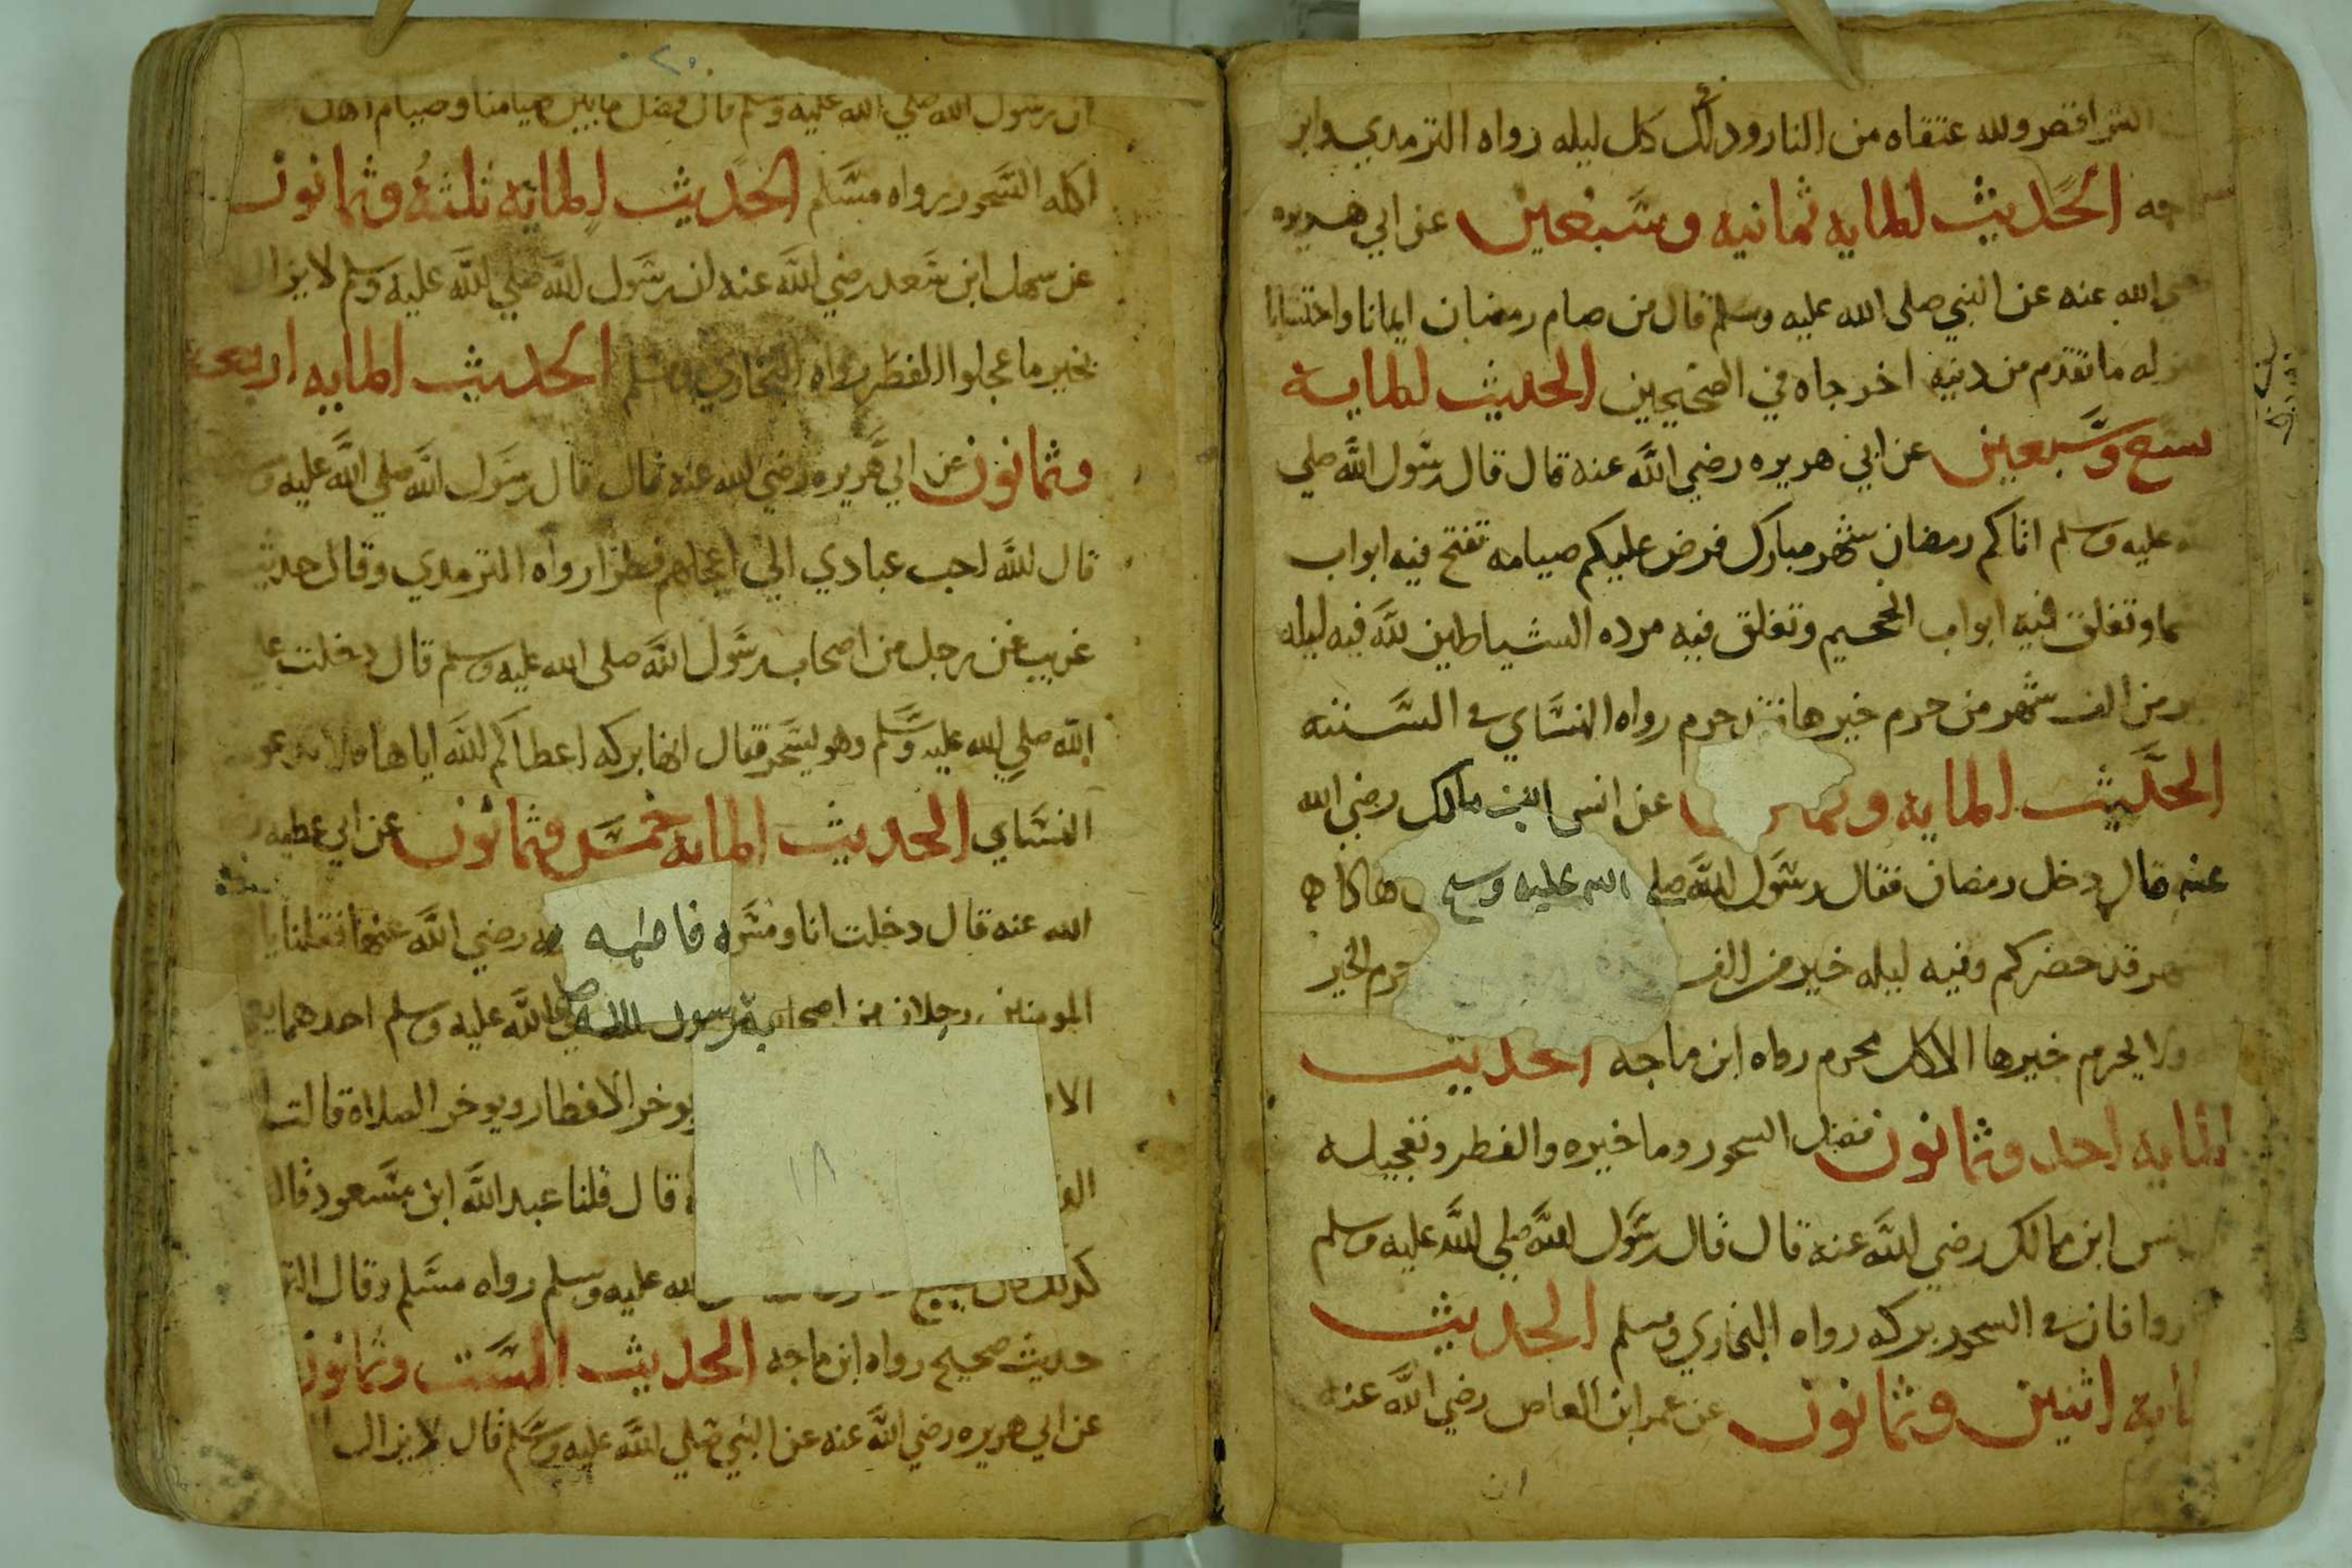 الشر اقصر ولله عتقاه من النار وذلك في كل ليله رواه الترمدي وابن
جه الحديث المايه ثمانيه وسبعين عن ابي هريره
ضي الله عنه عن النبي صلى الله عليه وسلم قال من صام رمضان ايمانا واحتسابا
له ما تقدم من دنبه اخرجاه في الصحيحين الحديث المايه
تسع وسبعين عن ابي هريره رضي الله عنه قال قال رسول الله صلي
عليه وسلم اتاكم رمضان شهر مبارك فرض عليكم صيامه تفتح فيه ابواب
ما وتغلق فيه ابواب الجحيم وتغلق فيه مرده الشياطين لله فيه ليله
ر من الف شهر من حرم خيرها حرم رواه النساي في السننه
الحديث المايه و عن انس ابن مالك رضي الله
عنه قال دخل رمضان فقال رسول الله صلي الله عليه وسلم
هر قد حضركم وفيه ليله خير من الف حرم الخير
ولا يحرم خيرها الا كل محرم رواه ابن ماجه الحديث
المايه احد وثمانون فضل السحور وما خيره والفطر وتعجيله
نس ابن مالك رضي الله عنه قال قال رسول الله صلي الله عليه وسلم
روا فان في السحور بركه رواه البخاري ومسلم الحديث
مايه اثنين وثمانون عن عمر ابن العاص رضي الله عنه
ان
٢٠
ان رسول الله صلي الله عليه وسلم قال فضل ما بين صيامنا وصيام اهل
اكله السحور رواه مسلم الحديث المايه ثلثه وثمانون
عن سهل ابن سعد رضي الله عنه ان رسول الله صلي الله عليه وسلم لا يزال
بخير ما عجلوا الفطر رواه البخاري ومسلم الحديث المايه اربعه
وثمانون عن ابي هريره رضي الله عنه قال قال رسول الله صلي الله عليه و
قال الله احب عبادي الي اعجلهم فطرا رواه الترمدي وقال حديث
غريب عن رجل من اصحاب رسول الله صلى الله عليه وسلم قال دخلت علي
الله صلي الله عليه وسلم وهو يسحر فقال انها بركه اعطاكم الله اياها
النساي الحديث المايه خمس وثمانون عن ابي عطيه
الله عنه قال دخلت انا ومسروق فاطمه رضي الله عنهما فقلنا يا
المومنين رجلان من اصحاب رسول الله صلي الله عليه وسلم احدهما يعج
الا يوخر الافطار ويوخر الصلاة قالت
قال قلنا عبد الله ابن مسعود قال
١٨
كذلك كان الله عليه وسلم رواه مسلم وقال التر
حديث صحيح رواه ابن ماجه الحديث الست وثمانون
عن ابي هريره رضي الله عنه عن النبي صلي الله عليه وسلم قال لا يزال